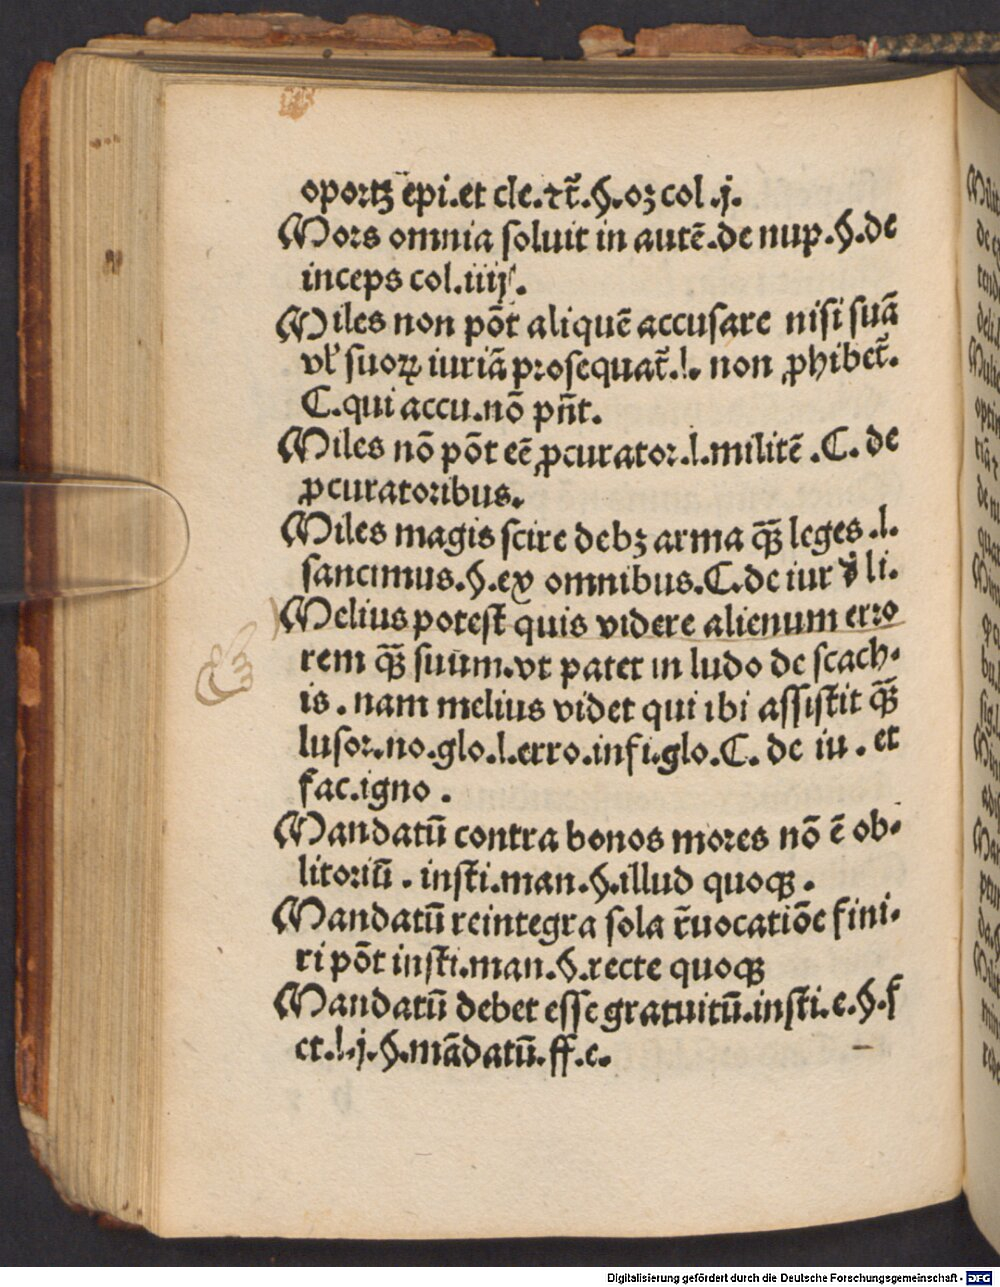 oportꝫ ep̄i.et cle.⁊t̄.§.oꝫ col.j.
Mors omnia soluit in autē.de nup.§.de
inceps col.iiij.
Miles non pōt aliquē accusare nisi suā
vl̓ suoꝝ iuriā prosequat̄.l. non ꝓhibet̄.
C.qui accu.nō pn̄t.
Miles nō pōt eē ꝓcurator.l.militē.C. de
ꝓcuratoribus.
Miles magis scire debꝫ arma qꝫ̄ leges.l.
sancimus.§.ex omnibus.C.de iur d̓ li.
Melius potest quis videre alienum erro
rem qꝫ̄ suum.vt patet in ludo de scach-
is. nam melius videt qui ibi assistit qꝫ̄
lusor.no.glo.l.erro.infi.glo.C. de iu. et
fac.igno.
Mandatū contra bonos mores nō ē ob-
litoriū. insti.man.§.illud quoqꝫ.
Mandatū reintegra sola r̄uocatiōe fini-
ri pōt insti.man.§.recte quoqꝫ
Mandatū debet esse gratuitū.insti.e.§.f
et.l.j.§.mādatū.ff.e.
Digitalisierung gefördert durch die Deutsche Forschungsgemeinschaft - DFG